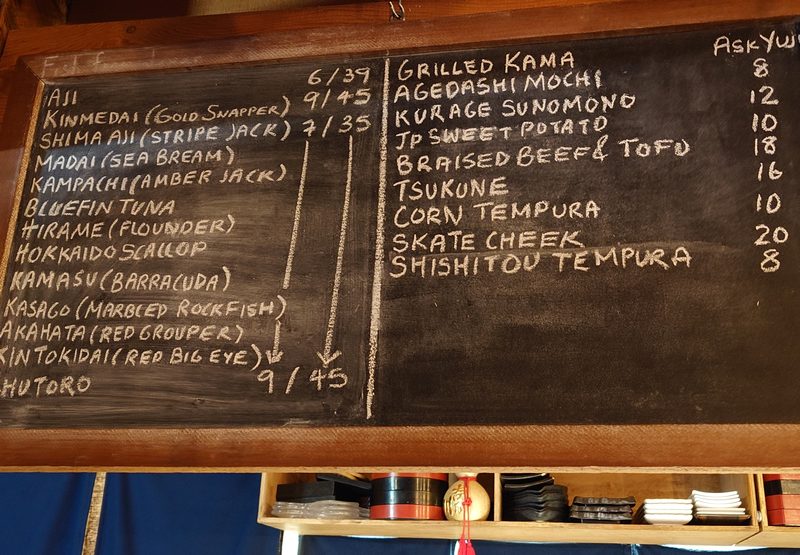 AJI 6/39
KINMEDAI (GOLD SNAPPER) 9/45
SHIMA AJI (STRIPE JACK) 7/35
MADAI (SEA BREAM)
KAMPACHI (AMBER JACK)
BLUEFIN TUNA
HIRAME (FLOUNDER)
HOKKAIDO SCALLOP
KAMASU (BARRACUDA)
KASAGO (MARBLED ROCKFISH)
AKAHATA (RED GROUPER)
KINTOKIDAI (RED BIG EYE)
HUTORO 9/45
GRILLED KAMA ASK
AGEDASHI MOCHI 8
KURAGE SUNOMONO 12
JP SWEET POTATO 10
BRAISED BEEF & TOFU 18
TSUKUNE 16
CORN TEMPURA 10
SKATE CHEEK 20
SHISHITOU TEMPURA 8